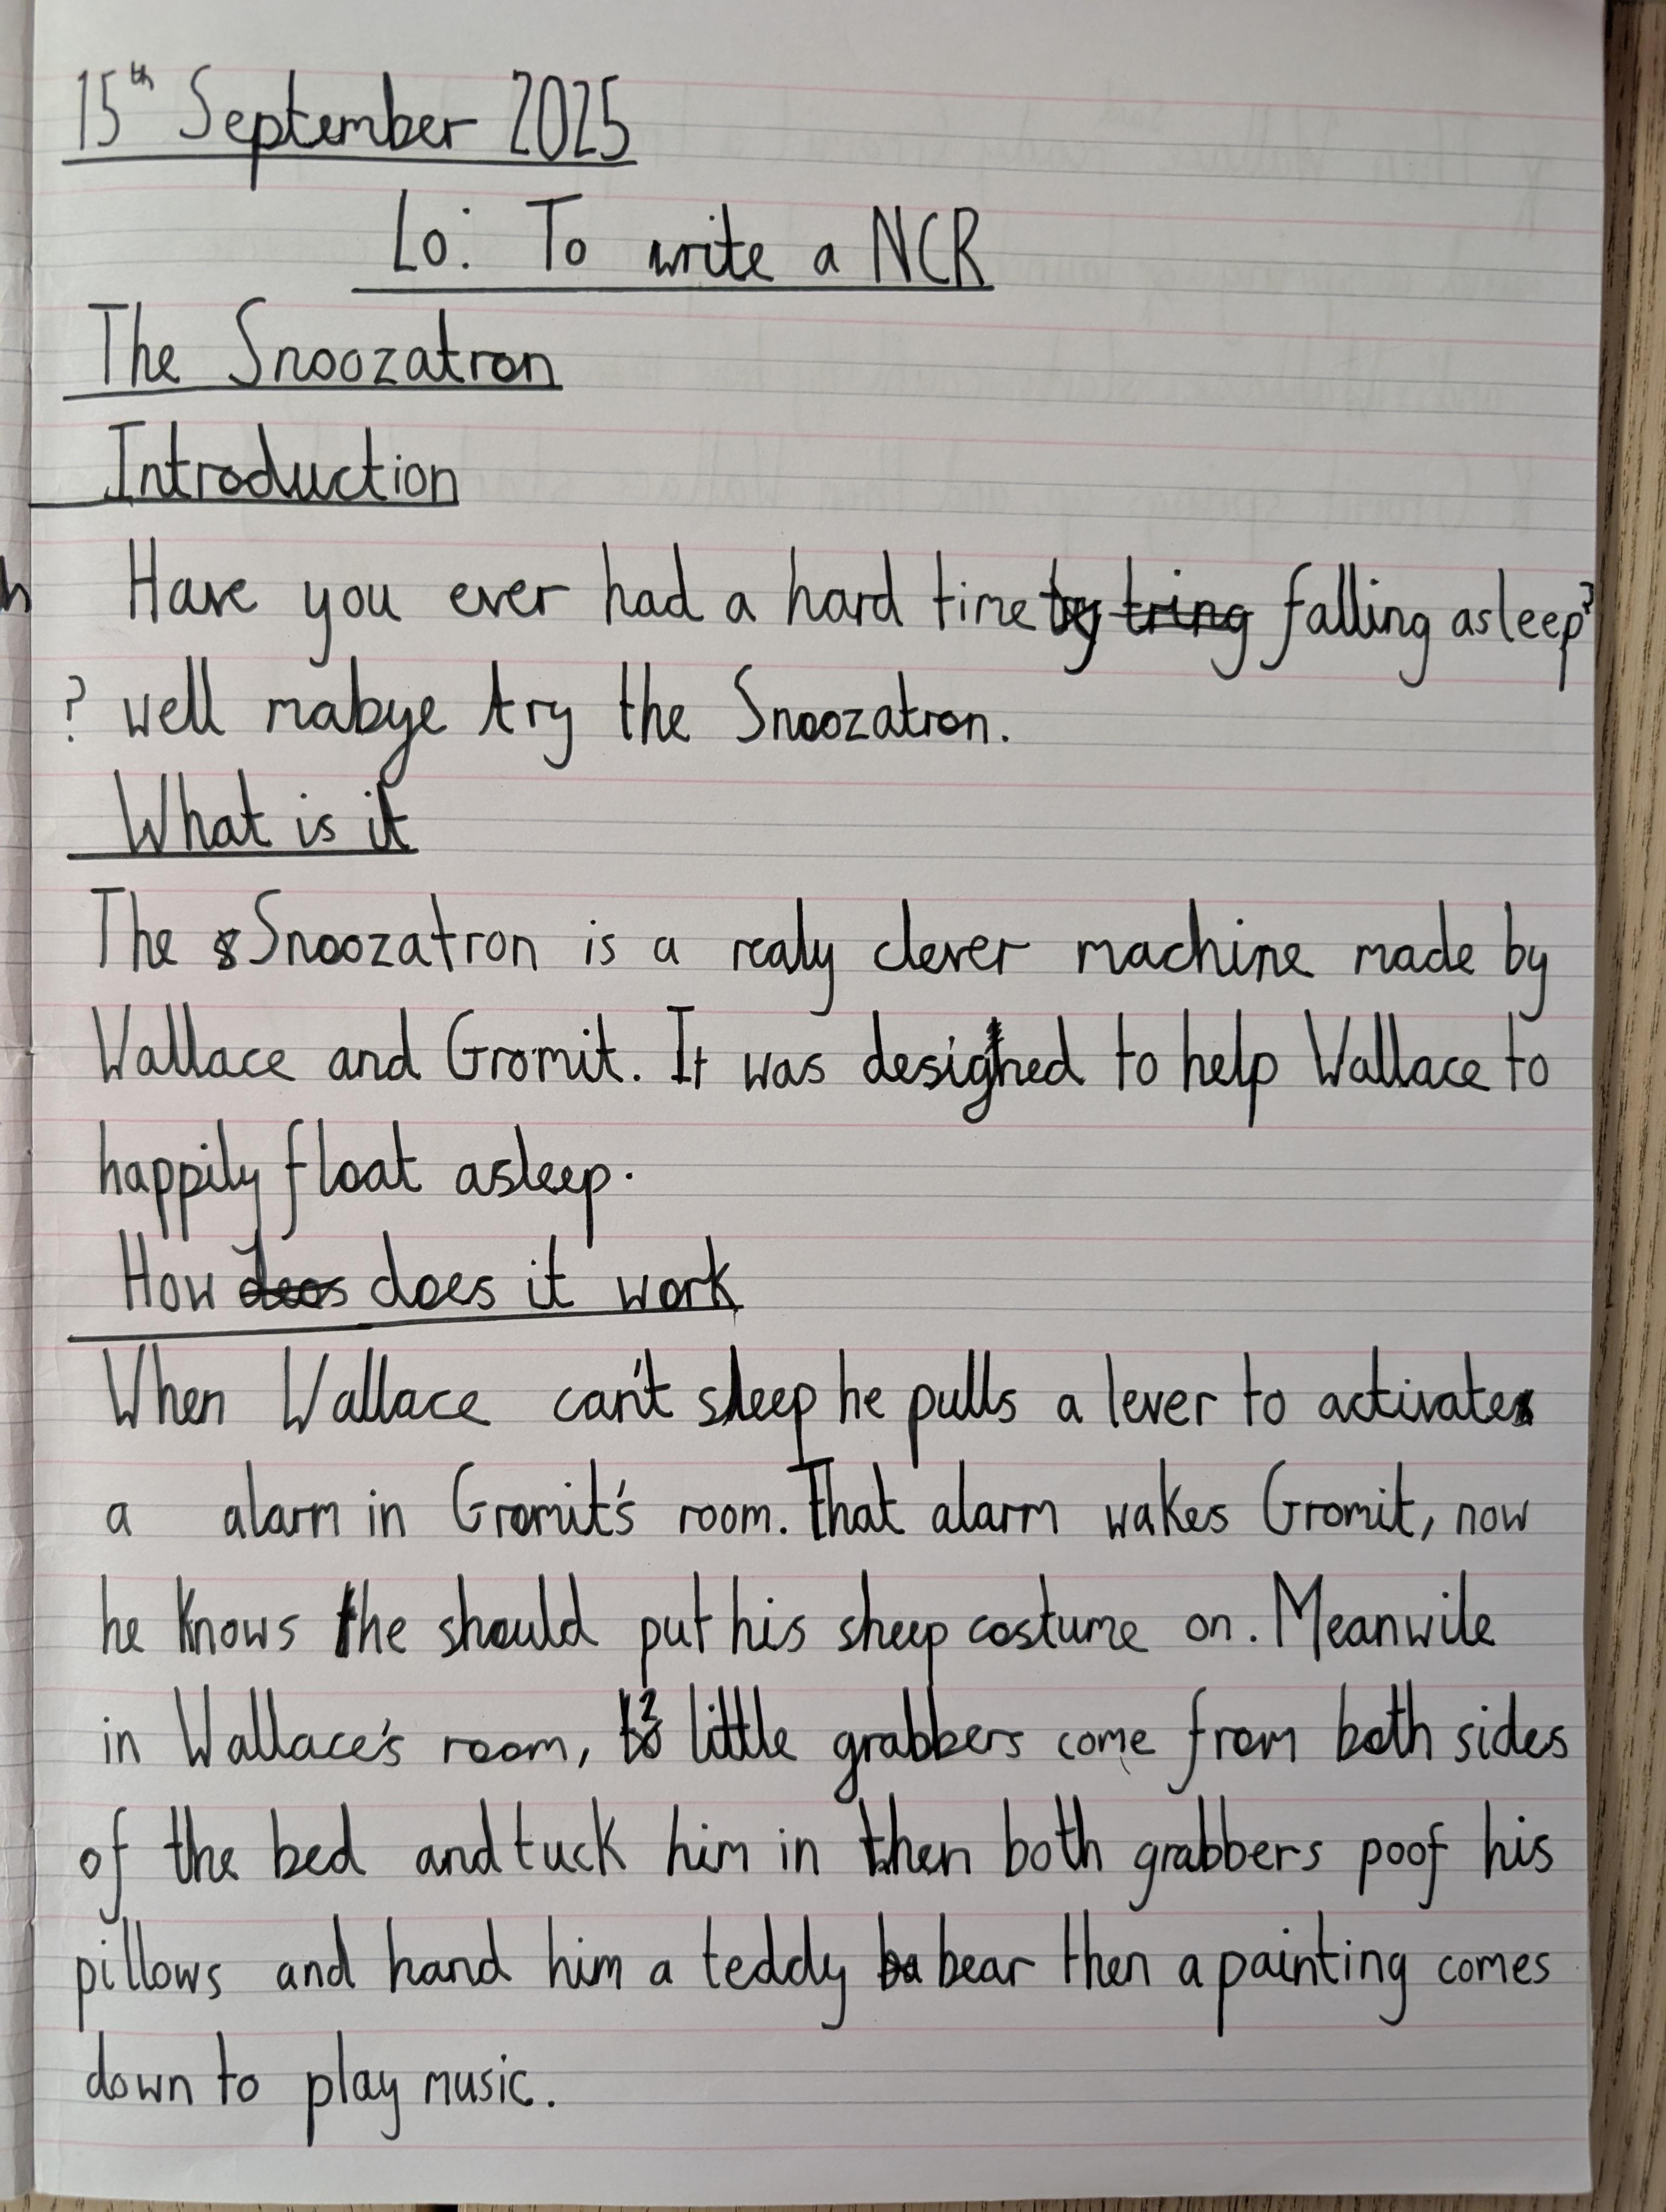 15th September 2025
Lo: To write a NCR
The Snoozatron
Introduction
Have you ever had a hard time try tring falling asleep?
? well mabye try the Snoozatron.
What is it
The s Snoozatron is a realy clever machine made by
Wallace and Gromit. It was designed to help Wallace to
happily float asleep.
How deos does it work
When Wallace can't sleep he pulls a lever to activate
a alarm in Gromit's room. That alarm wakes Gromit, now
he knows he should put his sheep costume on. Meanwile
in Wallace's room, 2 little grabbers come from both sides
of the bed and tuck him in then both grabbers poof his
pillows and hand him a teddy ba bear then a painting comes
down to play music.